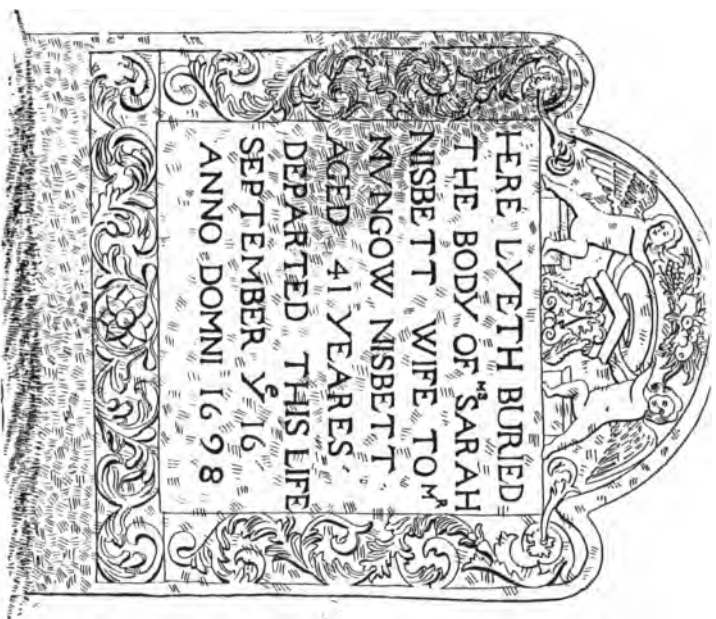 HERE LYETH BURIED
THE BODY OF Mʳˢ SARAH
NISBETT WIFE TO Mᴿ
MVNGOW NISBETT
AGED 41 YEARES
DEPARTED THIS LIFE
SEPTEMBER yᵉ 16
ANNO DOMNI 1698